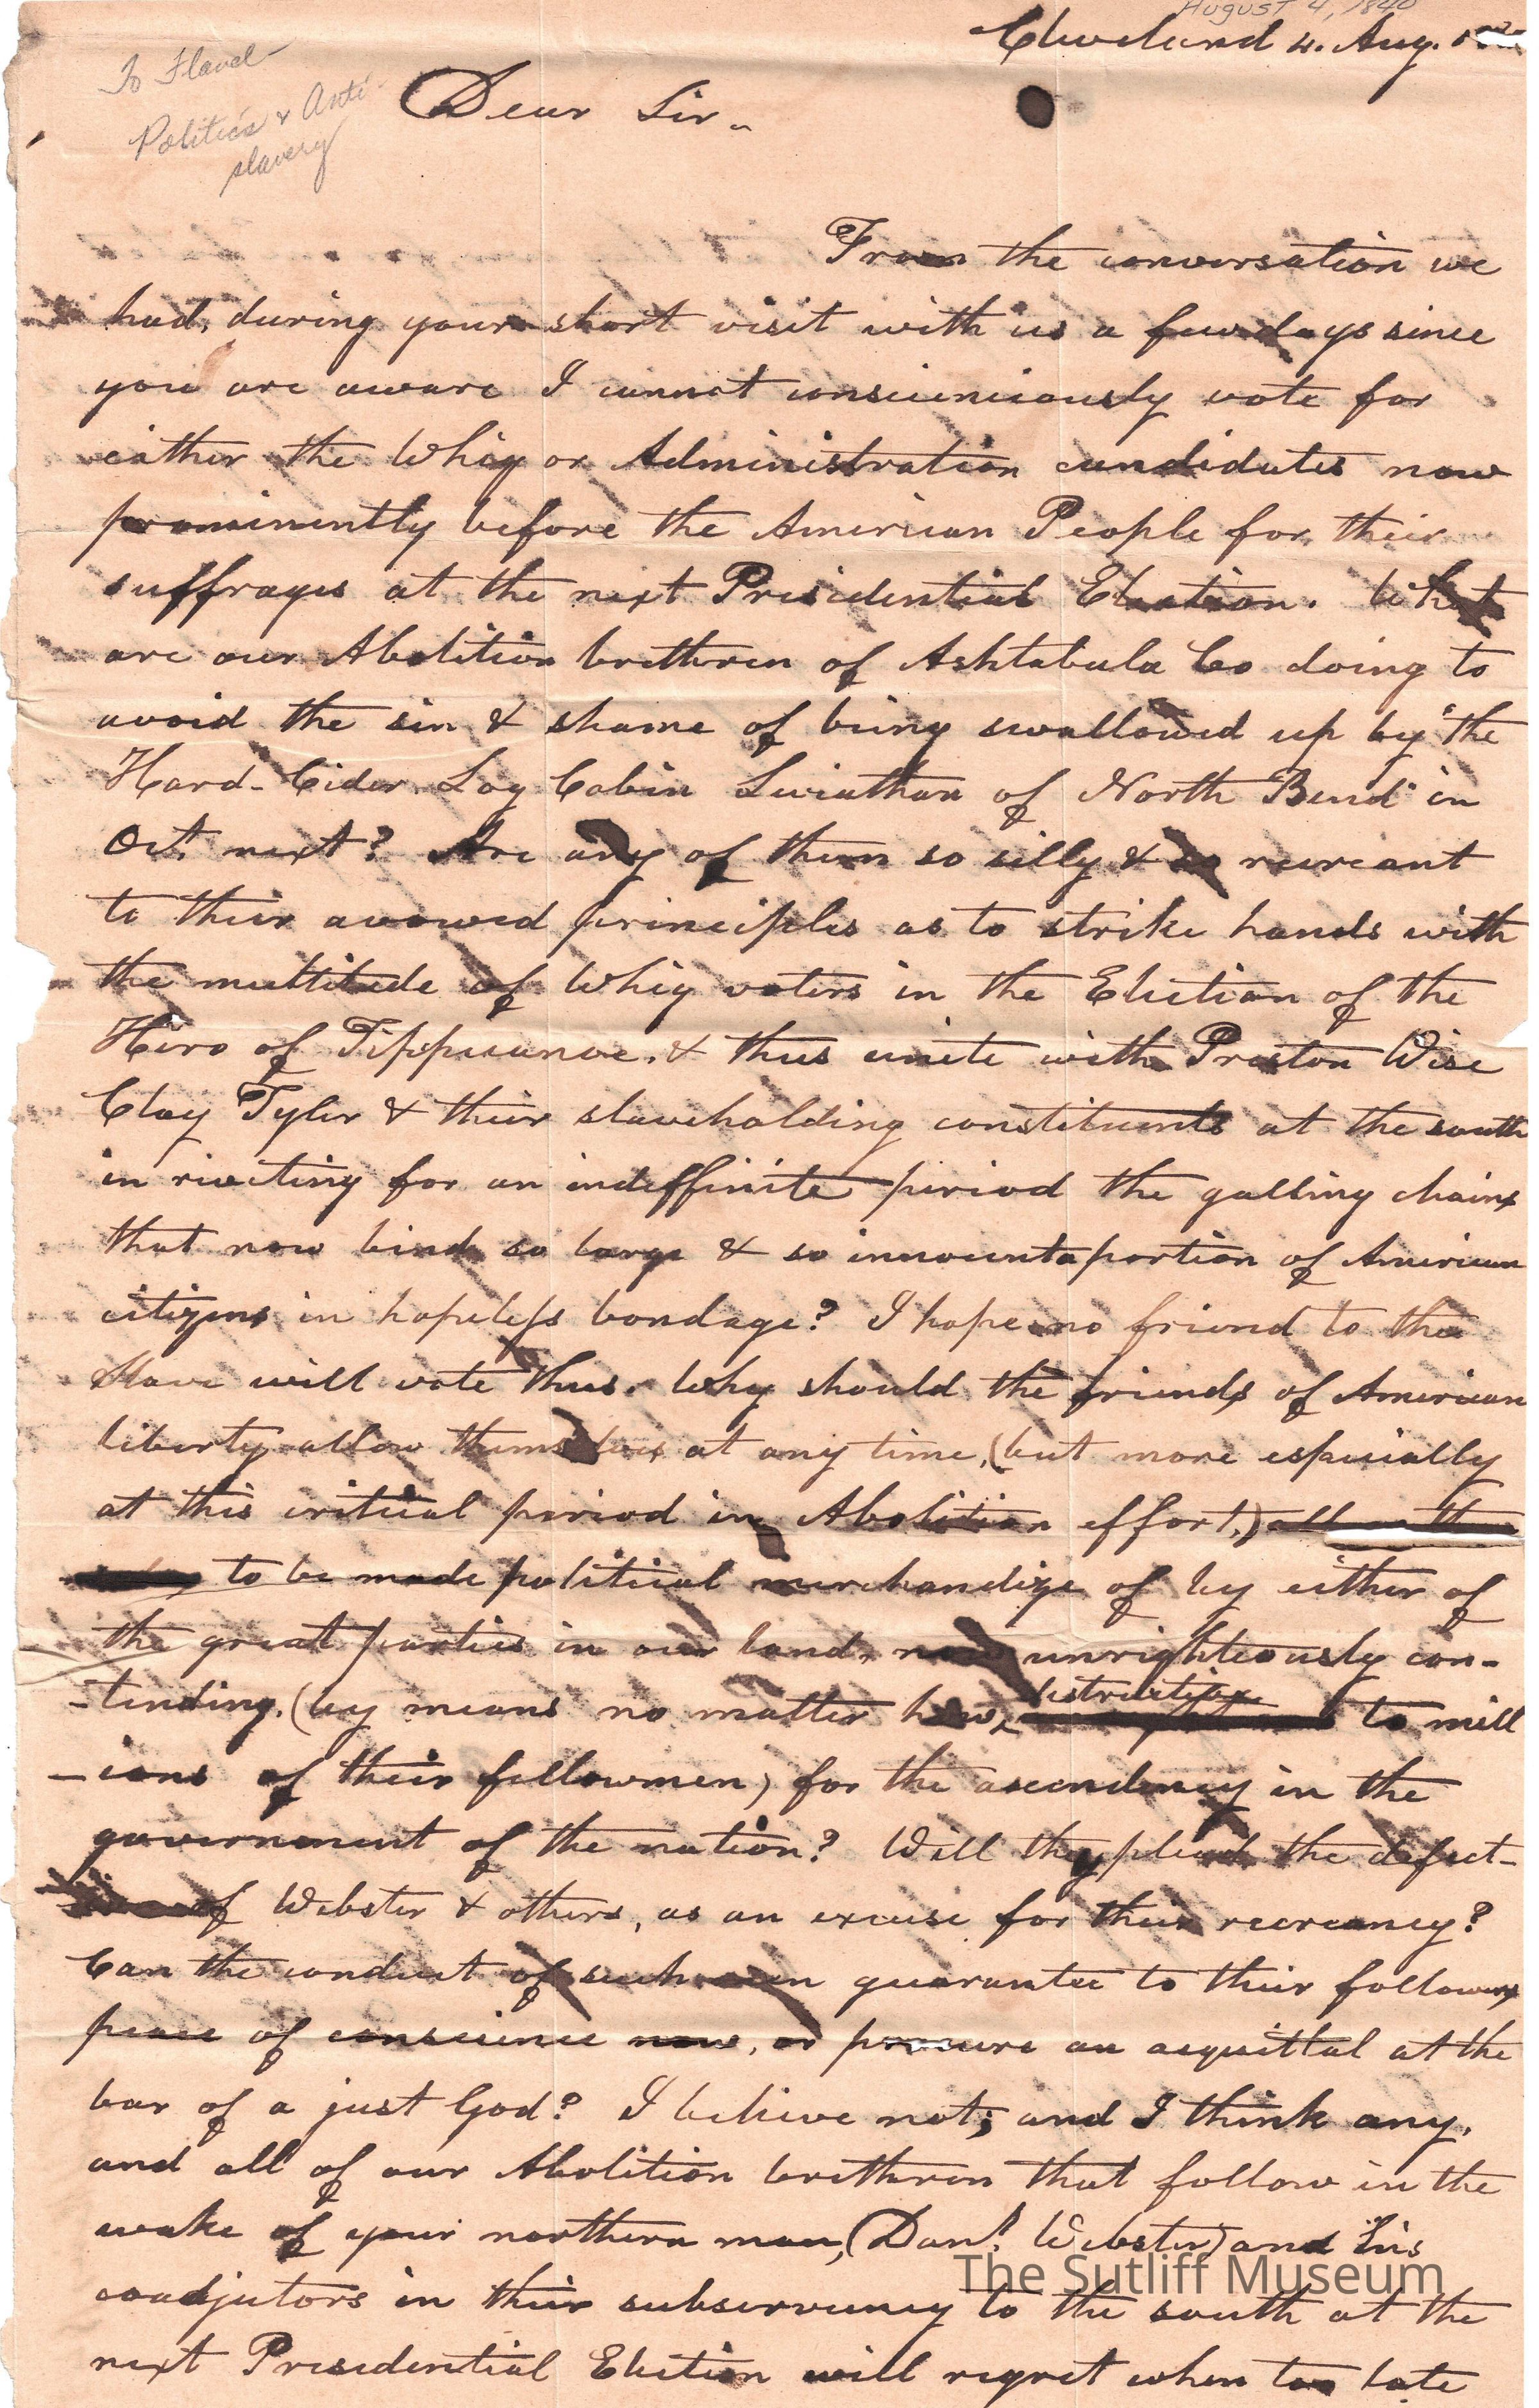 August 4, 1840
Cleveland 4. Aug.
To Flavel
Politics & Anti-
slavery
Dear Sir -
From the conversation we
had, during your short visit with us a few days since
you are aware I cannot consciencously vote for
either the Whig or Administration candidates now
prominently before the American People for their
suffrages at the next Presidential Election. What
are our Abolition brethren of Ashtabula Co doing to
avoid the sin & shame of being swallowed up by "the
Hard-Cider Log Cabin Leviathan of North Bend" in
Oct. next? Are any of them so silly & so recreant
to their avowed principles as to strike hands with
the multitude of Whig voters in the Election of the
Hero of Tippecanoe, & thus unite with Preston Wise
Clay Tyler & their slaveholding constituents at the south
in riveting for an indeffinite period the galling chains
that now bind so large & so innocent a portion of American
citizens in hopeless bondage? I hope no friend to the
Slave will vote thus. Why should the friends of American
liberty allow themselves at any time, (but more especially
at this critical period in Abolition effort,)
to be made political merchandize of by either of
the great parties in our land, now unrighteously con-
-tending, (by means no matter how destructive to mill
-ions of their fellowmen) for the ascendency in the
government of the nation? Will they plead the defect-
of Webster & others, as an excuse for their recreancy?
Can the conduct of such men guarantee to their followers
peace of conscience now, or procure an acquittal at the
bar of a just God? I believe not; and I think any,
and all of our Abolition brethren that follow in the
wake of your northern man, (Danl. Webster) and his
coadjutors in their subserviency to the south at the
next Presidential Election will regret when too late
The Sutliff Museum